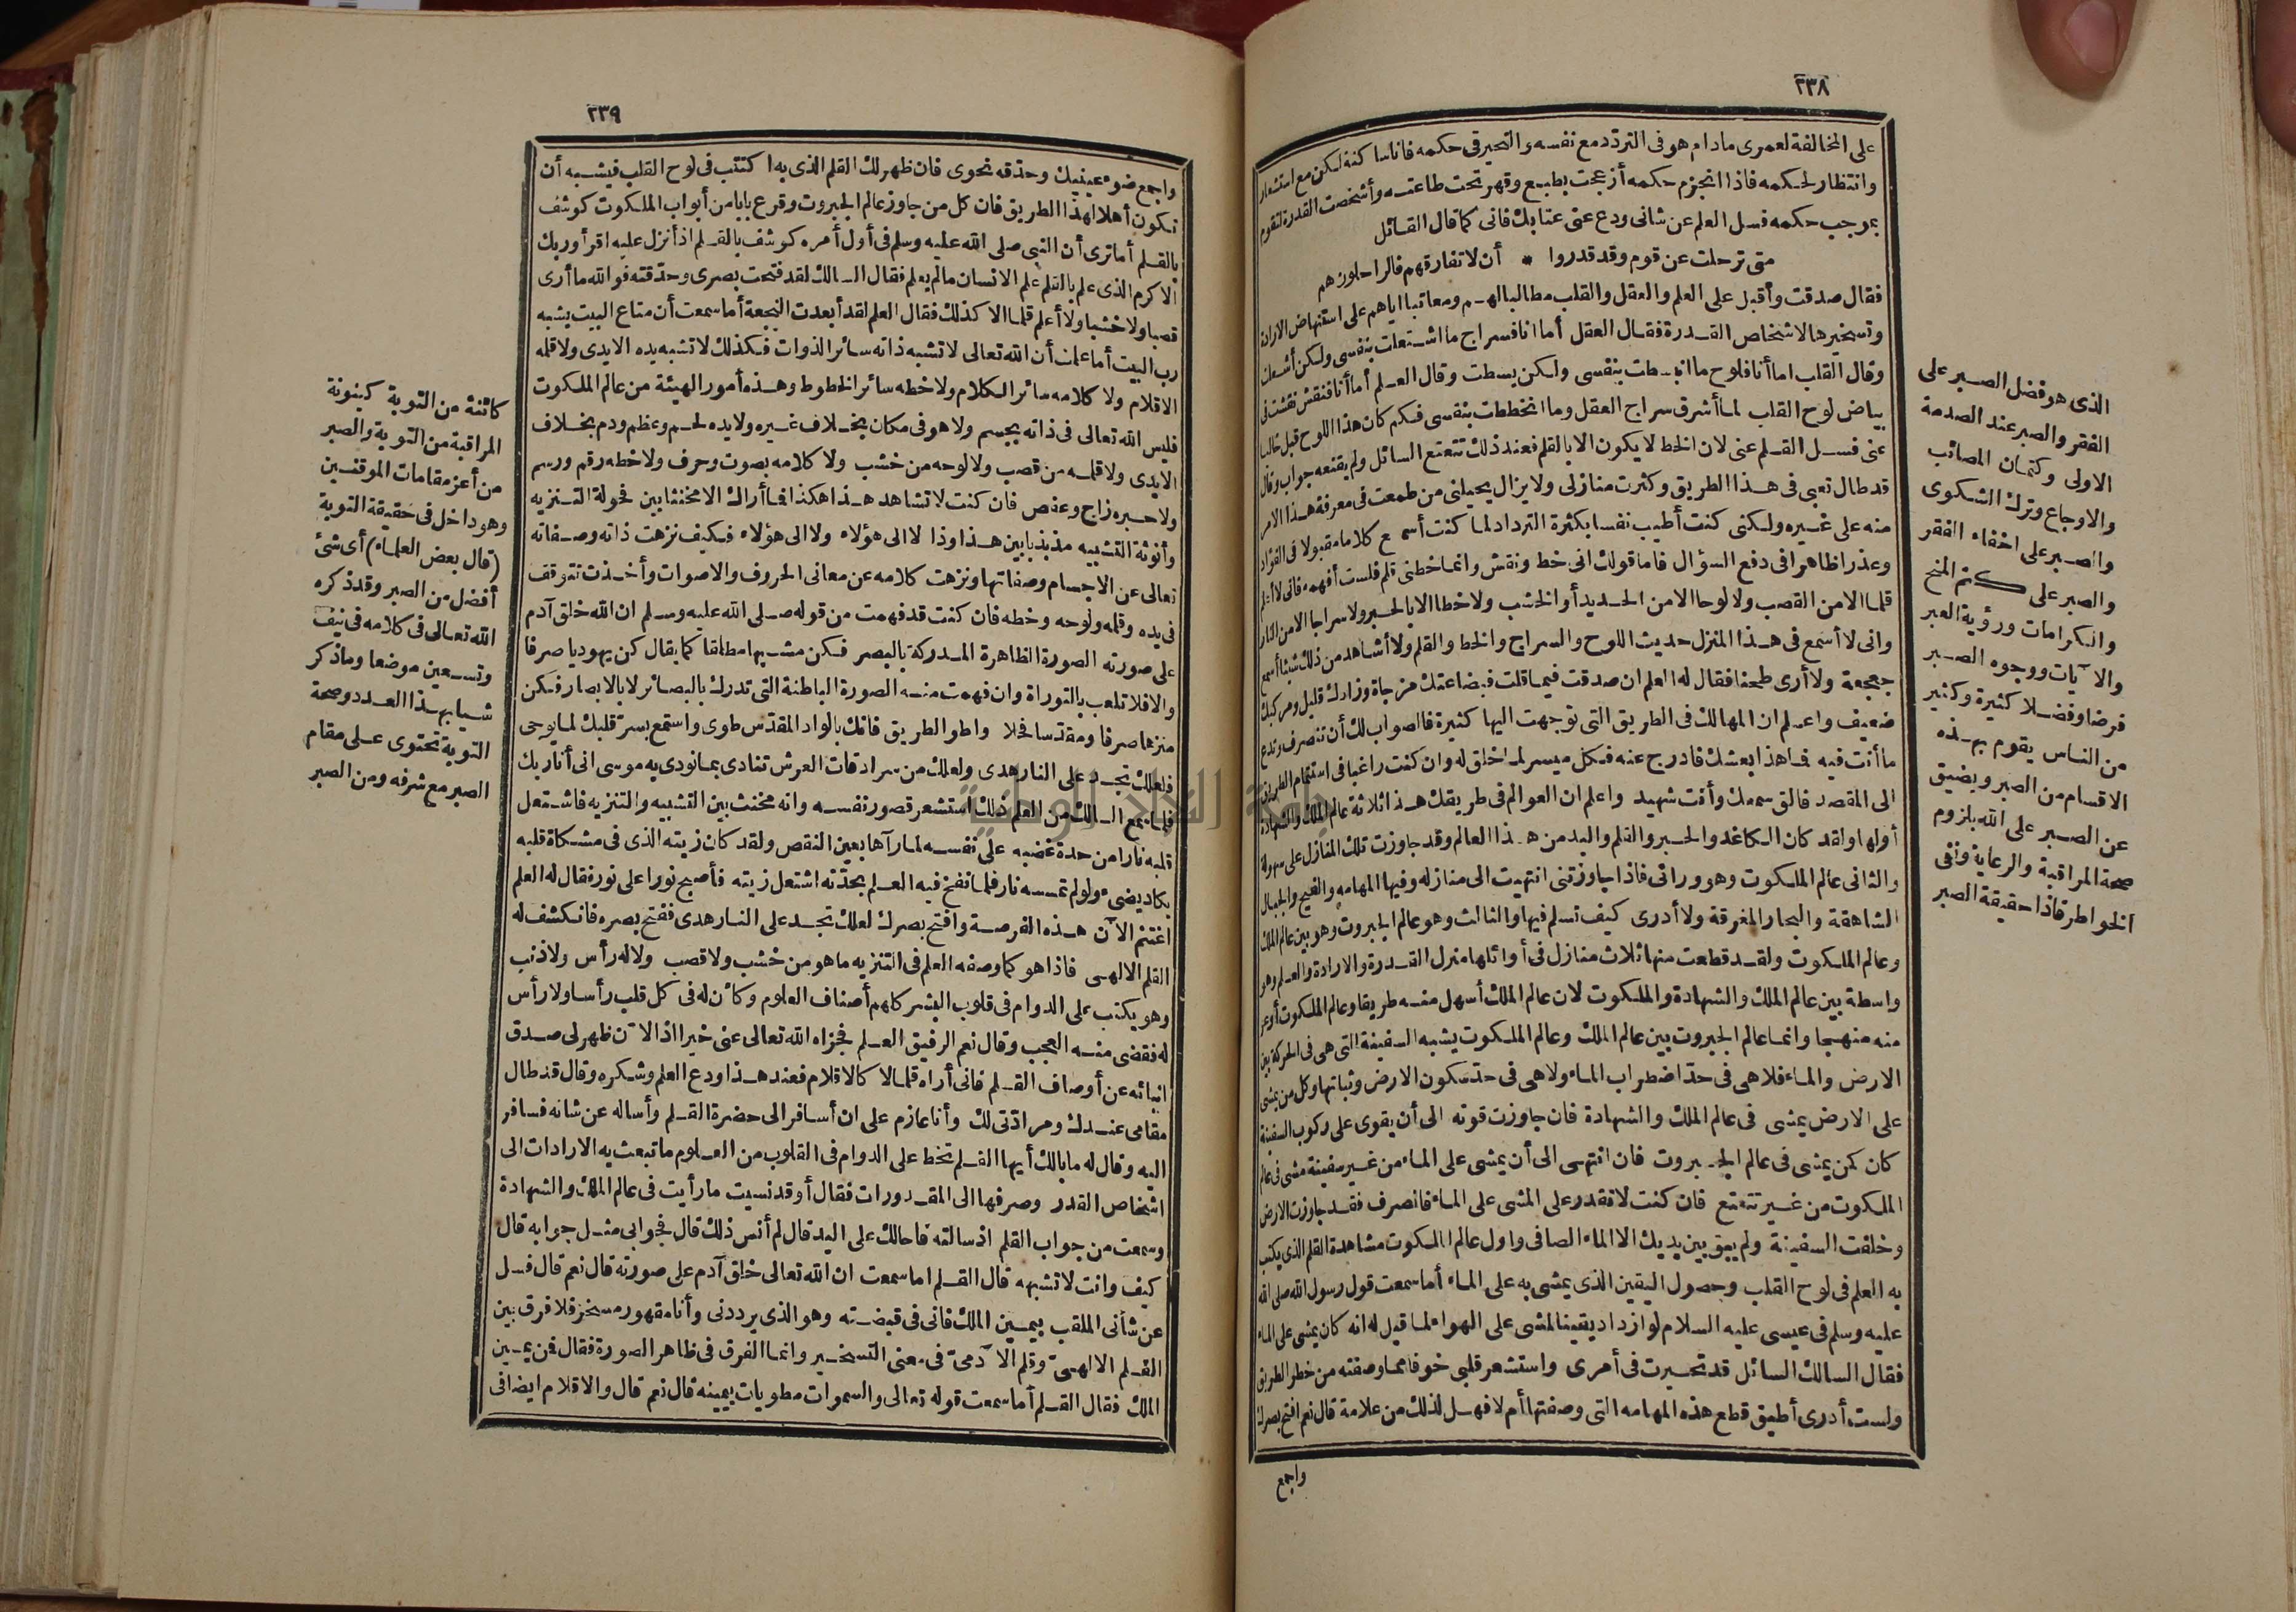 ٢٣٨
على المخالفة لعمرى مادام هو فى التردد مع نفسه والتحير فى حكمه فاناسا كنة لكن مع استشعار
وانتظار لحكمه فاذا انجزم حكمه أزعجت بطبع وقهر تحت طاعته وأشخصت القدرة لتقوم
بموجب حكمه فسل العلم عن شانى ودع عنى عتابك فانى كما قال القائل
متى ترحلت عن قوم وقد قدروا * أن لا تفارقهم فالراحلون هم
فقال صدقت وأقبل على العلم والعقل والقلب مطالبا لهم ومعاتبا اياهم على استنهاض الارادة
وتسخيرها لاشخاص القدرة فقال العقل أما انا فسراج ما اشتعلت بنفسى ولكن أشعلت
وقال القلب اما أنا فلوح ما انبسطت بنفسى ولكن بسطت وقال العلم أما أنا فنقش نقشت فى
بياض لوح القلب لما أشرق سراج العقل وما انخططت بنفسى فكم كان هذا اللوح قبل خاليا
عنى فسل القلم عنى لان الخط لا يكون الا بالقلم فعند ذلك تتعتع السائل ولم يقنعه جواب وقال
قد طال تعبى فى هذا الطريق وكثرت منازلى ولا يزال يحيلنى من طمعت فى معرفة هذا الامر
منه على غيره ولكنى كنت أطيب نفسا بكثرة الترداد لما كنت أسمع كلاما مقبولا فى الفؤاد
وعذرا ظاهرا فى دفع السؤال فاما قولك انى خط ونقش وانما خطنى قلم فلست أفهمه فانى لا أعلم
قلما الا من القصب ولا لوحا الا من الحديد أو الخشب ولا خطا الا بالحبر ولا سراجا الا من النار
وانى لا أسمع فى هذا المنزل حديث اللوح والسراج والخط والقلم ولا أشاهد من ذلك شيئا أسمع
جعجعة ولا أرى طحنا فقال له العلم ان صدقت فيما قلت فبضاعتك مزجاة وزادك قليل ومركبك
ضعيف واعلم ان المهالك فى الطريق التى توجهت اليها كثيرة فالصواب لك أن تنصرف وتدع
ما أنت فيه فما هذا بعشك فادرج عنه فكل ميسر لما خلق له وان كنت راغبا فى استتمام الطريق
الى المقصد فالق سمعك وأنت شهيد واعلم ان العوالم فى طريقك هذا ثلاثة عالم الملك والشهادة
أولها ولقد كان الكاغد والحبر والقلم واليد من هذا العالم وقد جاوزت تلك المنازل على سهولة
والثانى عالم الملكوت وهو ورائى فاذا جاوزتنى انتهيت الى منازله وفيها المهامه والفيح والجبال
الشاهقة والبحار المغرقة ولا أدرى كيف تسلم فيها والثالث وهو عالم الجبروت وهو بين عالم الملك
وعالم الملكوت ولقد قطعت منها ثلاث منازل فى أوائلها منزل القدرة والارادة والعلم وهو
واسطة بين عالم الملك والشهادة والملكوت لان عالم الملك أسهل منه طريقا وعالم الملكوت أوعر
منه منهجا وانما عالم الجبروت بين عالم الملك وعالم الملكوت يشبه السفينة التى هى فى الحركة بين
الارض والماء فلا هى فى حد اضطراب الماء ولا هى فى حد سكون الارض وثباتها وكل من يمشى
على الارض يمشى فى عالم الملك والشهادة فان جاوزت قوته الى أن يقوى على ركوب السفينة
كان كمن يمشى فى عالم الجبروت فان انتهى الى أن يمشى على الماء من غير سفينة مشى فى عالم
الملكوت من غير تتعتع فان كنت لا تقدر على المشى على الماء فانصرف فقد جاوزت الارض
وخلفت السفينة ولم يبق بين يديك الا الماء الصافى واول عالم الملكوت مشاهدة القلم الذى يكتب
به العلم فى لوح القلب وحصول اليقين الذى يمشى به على الماء أما سمعت قول رسول الله صلى الله
عليه وسلم فى عيسى عليه السلام لو ازداد يقينا لمشى على الهواء لما قيل له انه كان يمشى على الماء
فقال السالك السائل قد تحيرت فى أمرى واستشعر قلبى خوفا مما وصفته من خطر الطريق
ولست أدرى أطيق قطع هذه المهامه التى وصفتها أم لا فهل لذلك من علامة قال نعم افتح بصرك
واجمع
الذى هو فضل الصبر على
الفقر والصبر عند الصدمة
الاولى وكتمان المصائب
والاوجاع وترك الشكوى
والصبر على اخفاء الفقر
والصبر على كتم المنح
والكرامات ورؤية العبر
والآيات ووجوه الصبر
فرضا وفضلا كثيرة وكثير
من الناس يقوم بهذه
الاقسام من الصبر ويضيق
عن الصبر على الله بلزوم
صحة المراقبة والرعاية ونفى
الخواطر فاذا حقيقة الصبر
٢٣٩
واجمع ضوء عينيك وحدقه نحوى فان ظهر لك القلم الذى به اكتتب فى لوح القلب فيشبه أن
تكون أهلا لهذا الطريق فان كل من جاوز عالم الجبروت وقرع بابا من أبواب الملكوت كوشف
بالقلم أما ترى أن النبى صلى الله عليه وسلم فى أول أمره كوشف بالقلم اذ أنزل عليه اقرأ وربك
الاكرم الذى علم بالقلم علم الانسان ما لم يعلم فقال السالك لقد فتحت بصرى وحدقته فوالله ما أرى
قصبا ولا خشبا ولا أعلم قلما الا كذلك فقال العلم لقد أبعدت النجعة أما سمعت أن متاع البيت يشبه
رب البيت أما علمت أن الله تعالى لا تشبه ذاته سائر الذوات فكذلك لا تشبه يده الايدى ولا قلمه
الاقلام ولا كلامه سائر الكلام ولا خطه سائر الخطوط وهذه أمور الهية من عالم الملكوت
فليس الله تعالى فى ذاته بجسم ولا هو فى مكان بخلاف غيره ولا يده لحم وعظم ودم بخلاف
الايدى ولا قلمه من قصب ولا لوحه من خشب ولا كلامه بصوت وحرف ولا خطه رقم ورسم
ولا حبره زاج وعفص فان كنت لا تشاهد هذا هكذا فما أراك الا مخنثا بين فحولة التنزيه
وأنوثة التشبيه مذبذبا بين هذا وذا لا الى هؤلاء ولا الى هؤلاء فكيف نزهت ذاته وصفاته
تعالى عن الاجسام وصفاتها ونزهت كلامه عن معانى الحروف والاصوات وأخذت تتوقف
فى يده وقلمه ولوحه وخطه فان كنت قد فهمت من قوله صلى الله عليه وسلم ان الله خلق آدم
على صورته الصورة الظاهرة المدركة بالبصر فكن مشبها مطلقا كما يقال كن يهوديا صرفا
والا فلا تلعب بالتوراة وان فهمت منه الصورة الباطنة التى تدرك بالبصائر لا بالابصار فكن
منزها صرفا ومقدسا فحلا واطو الطريق فانك بالواد المقدس طوى واستمع بسر قلبك لما يوحى
فلعلك تجد على النار هدى ولعلك من سرادقات العرش تنادى بما نودى به موسى انى أنا ربك
فلما سمع السالك من العلم ذلك استشعر قصور نفسه وانه مخنث بين التشبيه والتنزيه فاشتعل
قلبه نارا من حدة غضبه على نفسه لما رآها بعين النقص ولقد كان زيته الذى فى مشكاة قلبه
يكاد يضىء ولو لم تمسسه نار فلما نفخ فيه العلم بحدته اشتعل زيته فأصبح نورا على نور فقال له العلم
اغتنم الآن هذه الفرصة وافتح بصرك لعلك تجد على النار هدى ففتح بصره فانكشف له
القلم الالهى فاذا هو كما وصفه العلم فى التنزيه ما هو من خشب ولا قصب ولا له رأس ولا ذنب
وهو يكتب على الدوام فى قلوب البشر كلهم أصناف العلوم وكأن له فى كل قلب رأسا ولا رأس
له فقضى منه العجب وقال نعم الرفيق العلم فجزاه الله تعالى عنى خيرا اذ الآن ظهر لى صدق
انبائه عن أوصاف القلم فانى أراه قلما لا كالاقلام فعند هذا ودع العلم وشكره وقال قد طال
مقامى عندك ومرادتى لك وأنا عازم على ان أسافر الى حضرة القلم وأساله عن شانه فسافر
اليه وقال له ما بالك أيها القلم تخط على الدوام فى القلوب من العلوم ما تبعث به الارادات الى
اشخاص القدر وصرفها الى المقدورات فقال أوقد نسيت ما رأيت فى عالم الملك والشهادة
وسمعت من جواب القلم اذ سالته فاحالك على اليد قال لم أنس ذلك قال فجوابى مثل جوابه قال
كيف وانت لا تشبهه قال القلم اما سمعت ان الله تعالى خلق آدم على صورته قال نعم قال فسل
عن شأنى الملقب بيمين الملك فانى فى قبضته وهو الذى يرددنى وأنا مقهور مسخر فلا فرق بين
القلم الالهى وقلم الآدمى فى معنى التسخير وانما الفرق فى ظاهر الصورة فقال فمن يمين
الملك فقال القلم أما سمعت قوله تعالى والسموات مطويات بيمينه قال نعم قال والاقلام ايضا فى
كائنة من التوبة كينونة
المراقبة من التوبة والصبر
من أعز مقامات الموقنين
وهو داخل فى حقيقة التوبة
(قال بعض العلماء) أى شئ
أفضل من الصبر وقد ذكره
الله تعالى فى كلامه فى نيف
وتسعين موضعا وما ذكر
شيا بهذا العدد وصحة
التوبة تحتوى على مقام
الصبر مع شرفه ومن الصبر
جامعة النجاح الوطنية